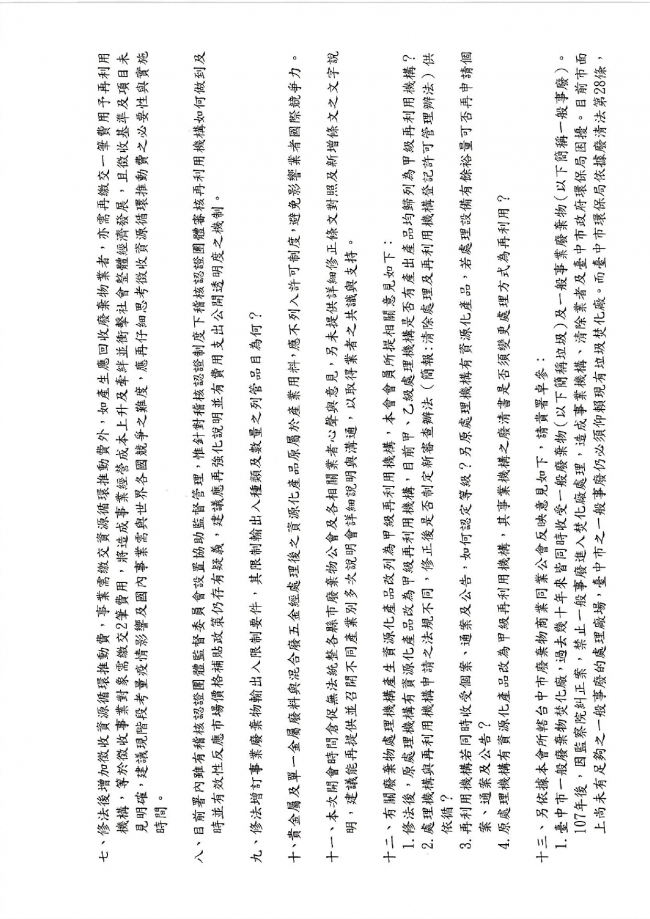 七、修法後增加徵收資源循環推動費，事業需繳交資源循環推動費外，如產生應回收廢棄物業者，亦需再繳交一筆費用予再利用
機構，等於徵收事業對象需繳交2筆費用，將造成事業經營成本上升及牽絆並衝擊社會整體經濟發展，且徵收基準及項目未
見明確，建議現階段考量疫情影響及國內事業需與世界各國競爭之難度，應再仔細思考徵收資源循環推動費之必要性與實施
時間。
八、目前署內雖有稽核認證團體監督委員會設置協助監督管理，惟針對稽核認證制度下稽核認證團體審核再利用機構如何做到及
時並有效性反應市場價格補貼政策仍存有疑義，建議應再強化說明並有費用支出公開透明度之機制。
九、修法增訂事業廢棄物輸出入限制要件，其限制輸出入種類及數量之列管品目為何？
十、貴金屬及單一金屬廢料與混合廢五金經處理後之資源化產品原屬於產業用料，應不列入許可制度，避免影響業者國際競爭力。
十一、本次開會時間倉促無法統整各縣市廢棄物公會及各相關業者心聲與意見，另未提供詳細修正條文對照及新增條文之文字說
明，建議能再提供並召開不同產業別多次說明會詳細說明與溝通，以取得業者之共識與支持。
十二、有關廢棄物處理機構產生資源化產品改列為甲級再利用機構，本會會員所提相關意見如下：
1. 修法後，原處理機構有資源化產品改為甲級再利用機構，目前甲、乙級處理機構是否有產出產品均歸列為甲級再利用機構？
2. 處理機構與再利用機構申請之法規不同，修正後是否制定新審查辦法（簡報：清除處理及再利用機構登記許可管理辦法）供
依循？
3. 再利用機構若同時收受個案、通案及公告，如何認定等級？另原處理機構有資源化產品，若處理設備有餘裕量可否再申請個
案、通案及公告？
4. 原處理機構有資源化產品改為甲級再利用機構，其事業機構之廢清書是否須變更處理方式為再利用？
十三、另依據本會所轄台中市廢棄物商業同業公會反映意見如下，請貴署卓參：
1. 臺中市一般廢棄物焚化廠，過去幾十年來皆同時收受一般廢棄物（以下簡稱垃圾）及一般事業廢棄物（以下簡稱一般事廢）。
107年後，因監察院糾正案，禁止一般事廢進入焚化廠處理，造成事業機構、清除業者及臺中市政府環保局困擾。目前市面
上尚未有足夠之一般事廢的處理廠場，臺中市之一般事廢仍必須仰賴現有垃圾焚化廠。而臺中市環保局依據廢清法第28條，